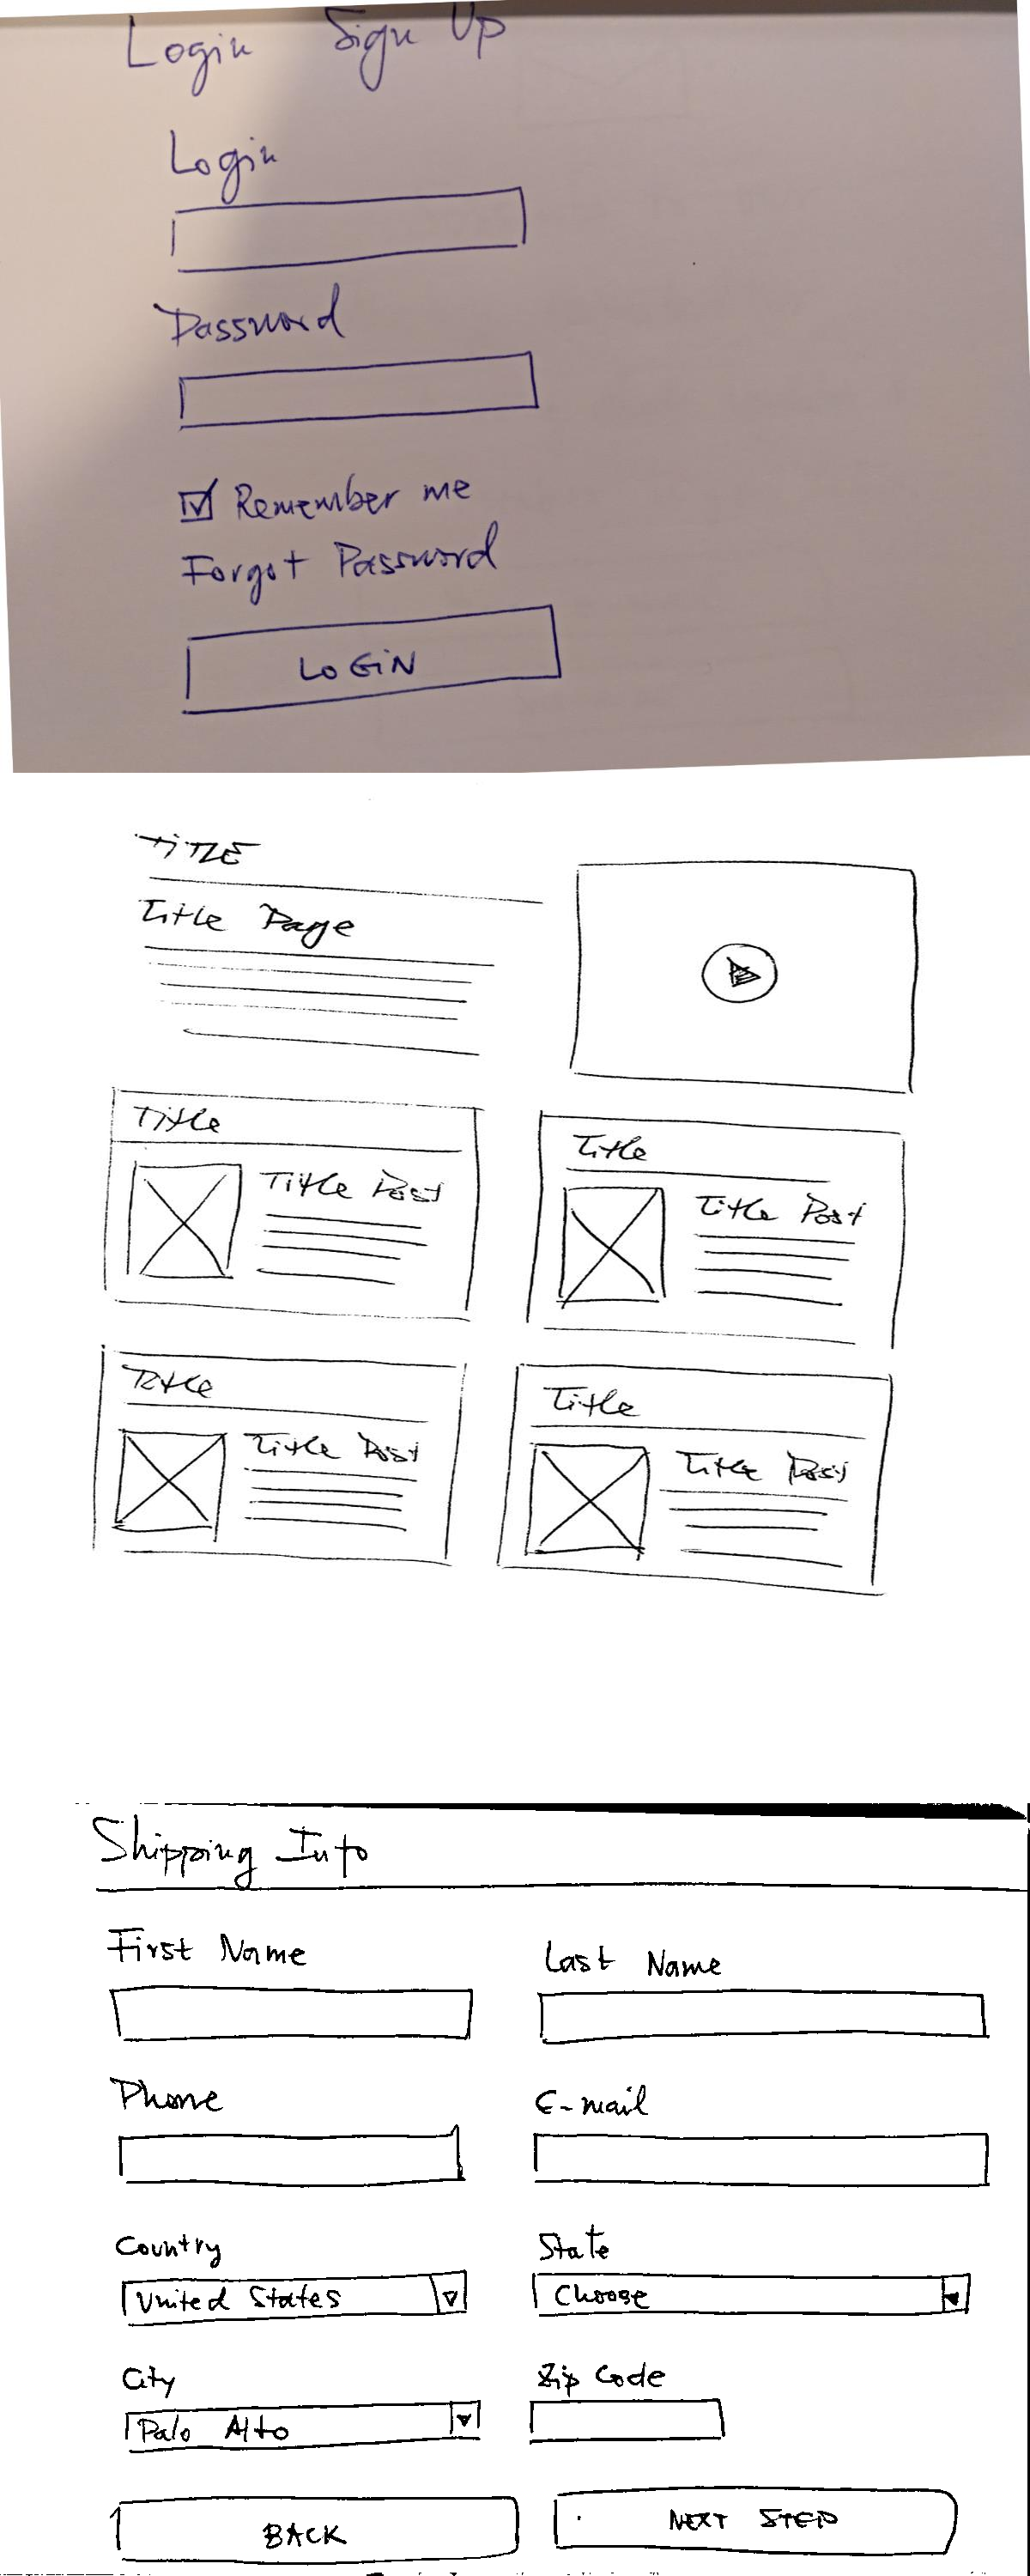 Login Sign Up
Login
Password
Remember me
Forgot Password
LOGIN
TITLE
Title Page
Title
Title Post
Title
Title Post
Title
Title Post
Title
Title Post
Shipping Info
First Name Last Name
Phone E-mail
Country State
United States Choose
City Zip Code
Palo Alto
BACK NEXT STEP